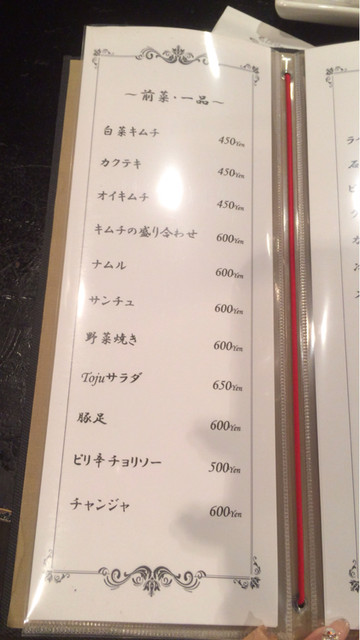 ～前菜・一品～
白菜キムチ 450Yen
カクテキ 450Yen
オイキムチ 450Yen
キムチの盛り合わせ 600Yen
ナムル 600Yen
サンチュ 600Yen
野菜焼き 600Yen
Tojuサラダ 650Yen
豚足 600Yen
ピリ辛チョリソー 500Yen
チャンジャ 600Yen